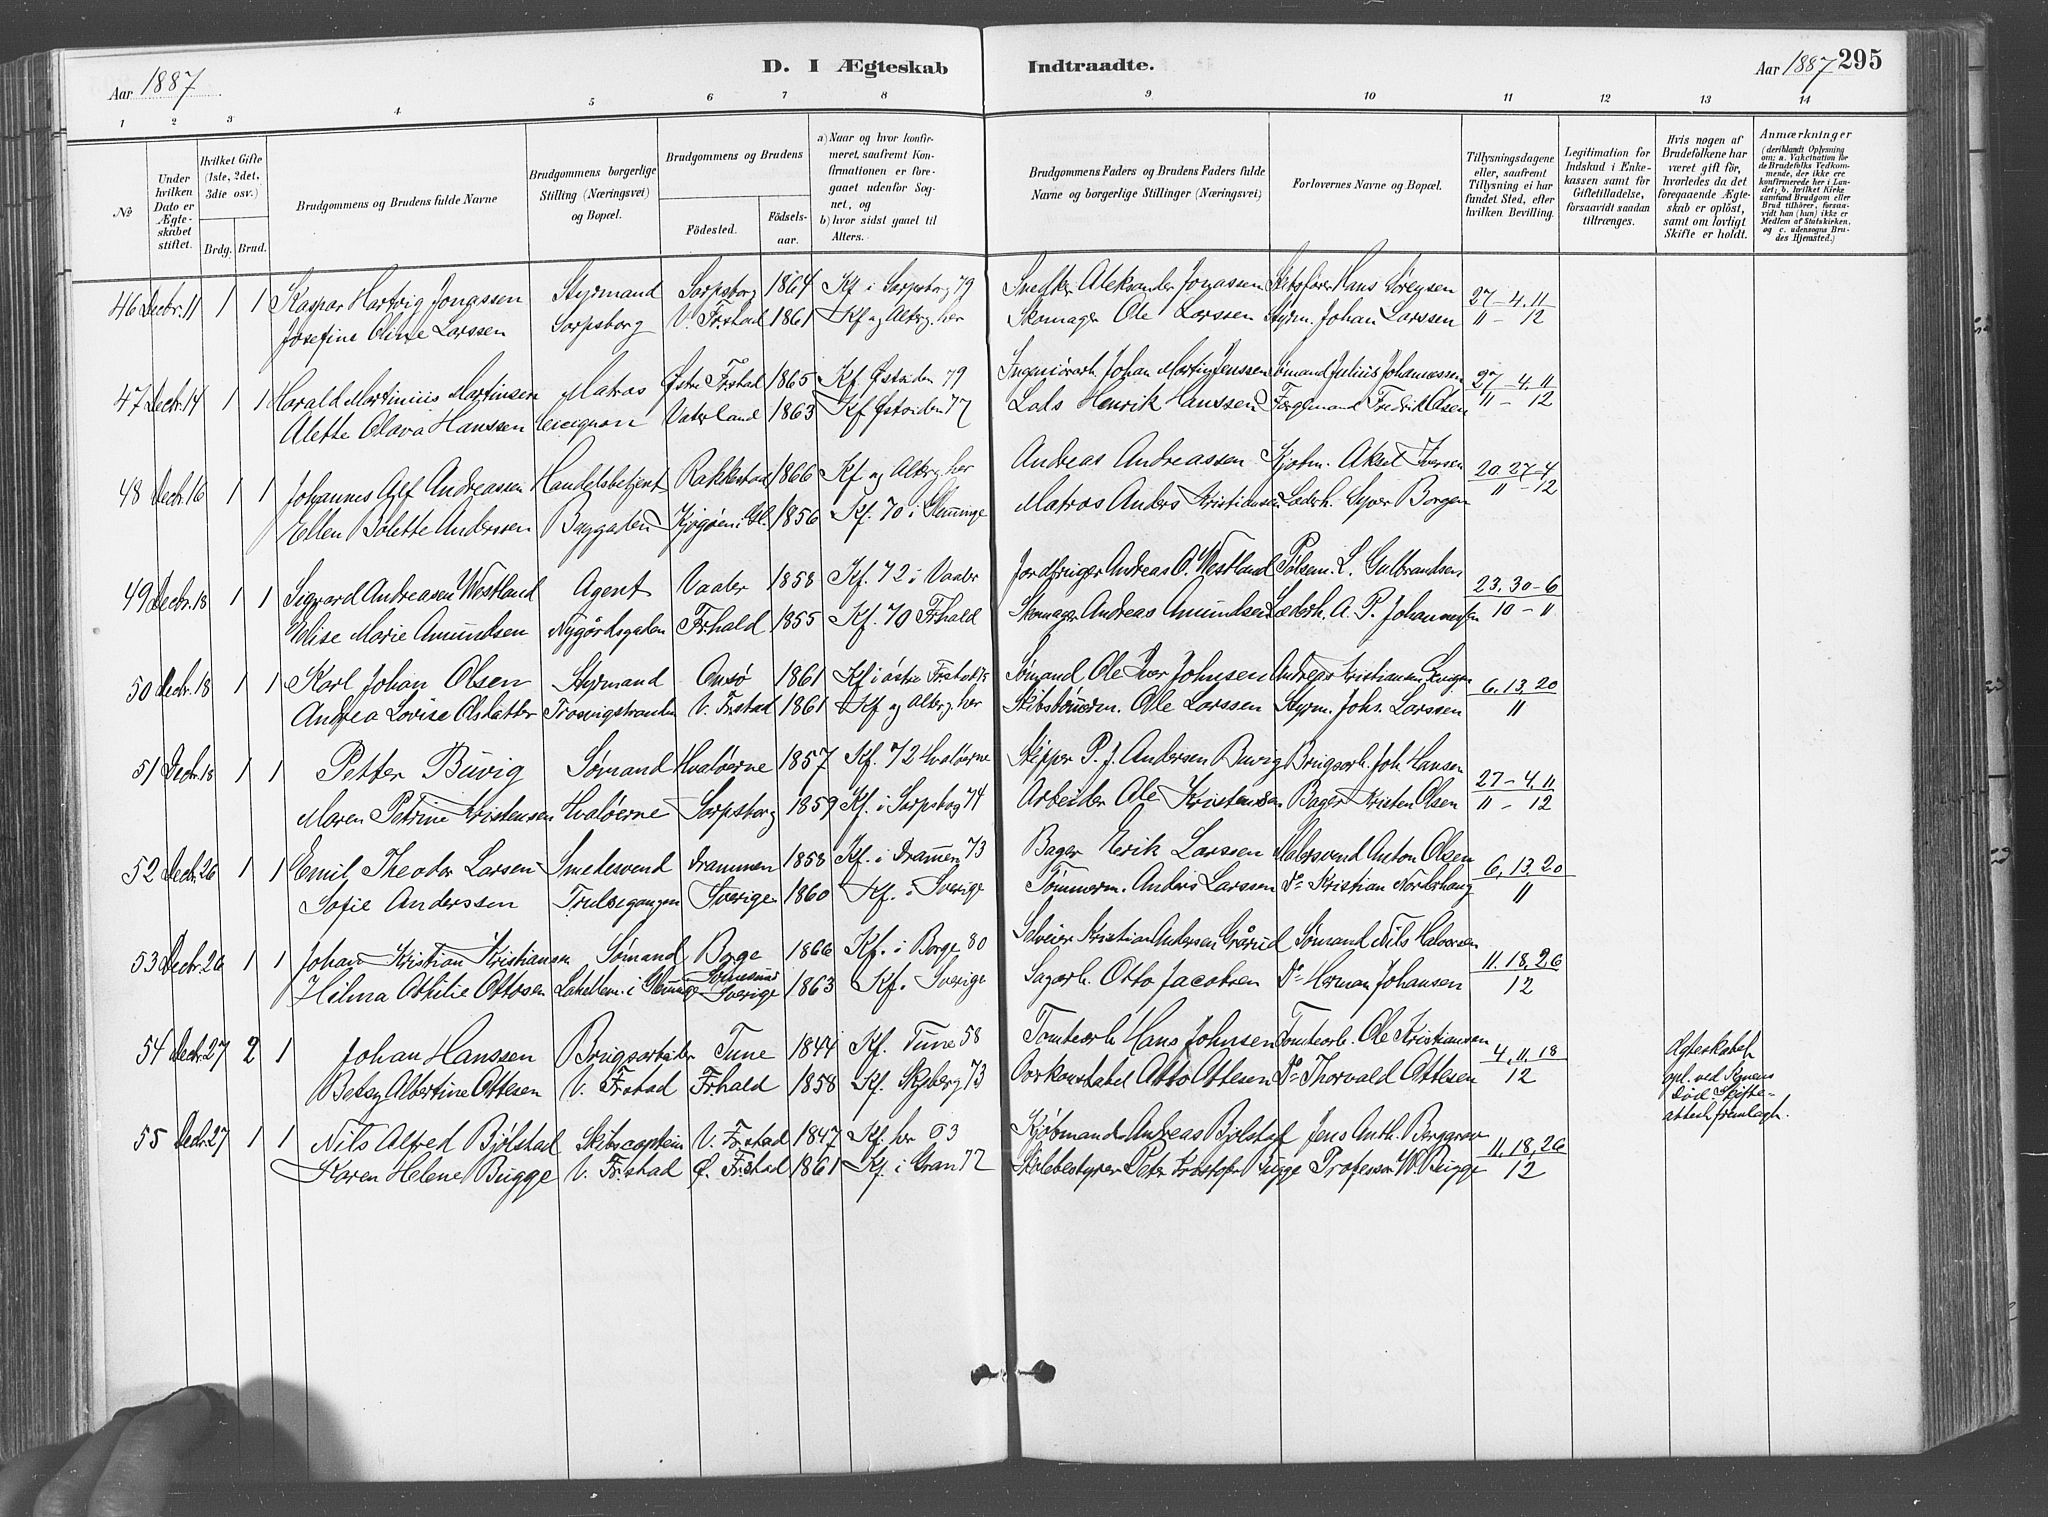 Aar 1887
D. I Ægteskab Indtraadte.
Aar 1887 295
1 2 3 4 5 6 7 8 9 10 11 12 13 14
No
Under hvilken Dato er Ægteskabet stiftet.
Hvilket Gifte (1ste, 2det, 3die osv.)
Brdg. Brud.
Brudgommens og Brudens fulde Navne
Brudgommens borgerlige Stilling (Næringsvei) og Bopæl.
Brudgommens og Brudens
Fødested. Fødselsaar.
a) Naar og hvor konfirmeret, saafremt Konfirmationen er foregaaet udenfor Sognet, og
b) hvor sidst gaaet til Alters.
Brudgommens Faders og Brudens Faders fulde Navne og borgerlige Stillinger (Næringsvei)
Forlovernes Navne og Bopæl.
Tillysningsdagene eller, saafremt Tillysning ei har fundet Sted, efter hvilken Bevilling.
Legitimation for Indskud i Enkekassen samt for Giftetilladelse, forsaavidt saadan tiltrænges.
Hvis nogen af Brudefolkene har været gift før, hvorledes da det foregaaende Ægteskab er opløst, samt om lovligt Skifte er holdt.
Anmærkninger (deriblandt Oplysning om: a. Vakcination for de Brudefolks Vedkommende, der ikke ere konfirmerede her i Landet; b. hvilket Kirkesamfund Brudgom eller Brud tilhører, forsaavidt han (hun) ikke er Medlem af Statskirken, og c. udensogns Brudes Hjemsted.)
46 Decbr. 11 1 1 Kaspar Hartvig Jonassen Styrmand Sarpsborg 1864 Kf. i Sarpsborg 79 Snedker Aleksander Jonassen Skibsfører Hans Sørensen 27 - 4, 11
Josefine Oline Larssen Sarpsborg V. Frstad 1861 Kf og Alterg. her Skomager Ole Larssen Styrm. Johan Larssen 11 - 12
47 Decbr. 14 1 1 Harald Martinius Martinsen Matros Østre Frstad 1865 Kf. Østsiden 79 Johan Martin Jenssen Sømand Julius Johannessen 27 - 4, 11
Alette Olava Hanssen Vaterland 1863 Kf Østsiden 77 Lods Henrik Hanssen Færgemand Fredrik Olsen 11 - 12
48 Decbr. 16 1 1 Johannes Alf Andreassen Handelsbetjent Rakkestad 1866 Kf og Alterg. her Andreas Andreassen Kjøbm. Aksel Iversen 20, 27 - 4
Ellen Bolette Anderssen Baggaden Kjøgøen i Gl. 1856 Kf. 70 i Glemminge Matros Anders Kristiansen Læderh. Syver Borgen 11 - 12
49 Decbr. 18 1 1 Sigvard Andreasen Westland Agent Vaaler 1858 Kf. 72 i Vaaler Jordbruger Andreas A. Westland Pølsem. L. Gulbrandsen 23, 30 - 6
Elise Marie Amundsen Nygårdsgaden Frhald 1855 Kf. 70 Frhald Skomager Andreas Amundsen Læderh. A. P. Johannessen 10 - 11
50 Decbr. 18 1 1 Karl Johan Olsen Styrmand Onsø 1861 Kf i østre Frstad 75 Sømand Ole Iver Johnsen Andreas Kristiansen 6, 13, 20
Andrea Lovise Olsdatter Trosvigstranden V. Frstad 1861 Kf og Alterg. her Skibstømmerm. Ole Larssen Styrm. Johs. Larssen 11
51 Decbr. 18 1 1 Petter Buvig Sømand Hvaløerne 1857 Kf. 72 Hvaløerne Skipper P. J. Andersen Buvig Brugsarb. Joh. Hansen 27 - 4, 11
Maren Petrine Kristensen Hvaløerne Sarpsborg 1859 Kf. i Sarpsborg 74 Arbeider Ole Kristensen Bager Kristen Olsen 11 - 12
52 Decbr. 26 1 1 Emil Theodor Larsen Smedesvend Drammen 1858 Kf. i Drammen 73 Bager Erik Larssen Malersvend Anton Olsen 6, 13, 20
Sofie Anderssen Trulsegangen Sverige 1860 Kf. i Sverige Tømmerm. Anders Larssen Do Kristian Nordahaug 11
53 Decbr. 26 1 1 Johan Kristian Kristiansen Sømand Borge 1866 Kf. i Borge 80 Selveier Kristian Andersen Grårud Sømand Nils Halvorsen 11, 18, 26
Hilma Othilie Ottosen i Glemminge Sverige 1863 Kf. Sverige Sagarb. Otto Jacobsen Do Herman Johansen 12
54 Decbr. 27 2 1 Johan Hanssen Brugsarbeider Tune 1844 Kf. Tune 58 Tomtearb. Hans Johnsen Tomtearb. Ole Kristiansen 4, 11, 18 Ægteskabet opl. ved Konens Død. Skifteattest fremlagt.
Betsy Albertine Ottesen V. Frstad Frhald 1858 Kf. Skjeberg 73 Otto Ottesen Do Thorvald Ottesen 12
55 Decbr. 27 1 1 Nils Alfred Bjølstad Skibscaptein V. Frstad 1847 Kf. her 63 Kjøbmand Andreas Bjølstad Jens Anth. Berggrav 11, 18, 26
Karen Helene Bugge V. Frstad Ø. Frstad 1861 Kf. i Gran 77 Skolebestyrer Peter Kristofer Bugge Professor W. Bugge 12